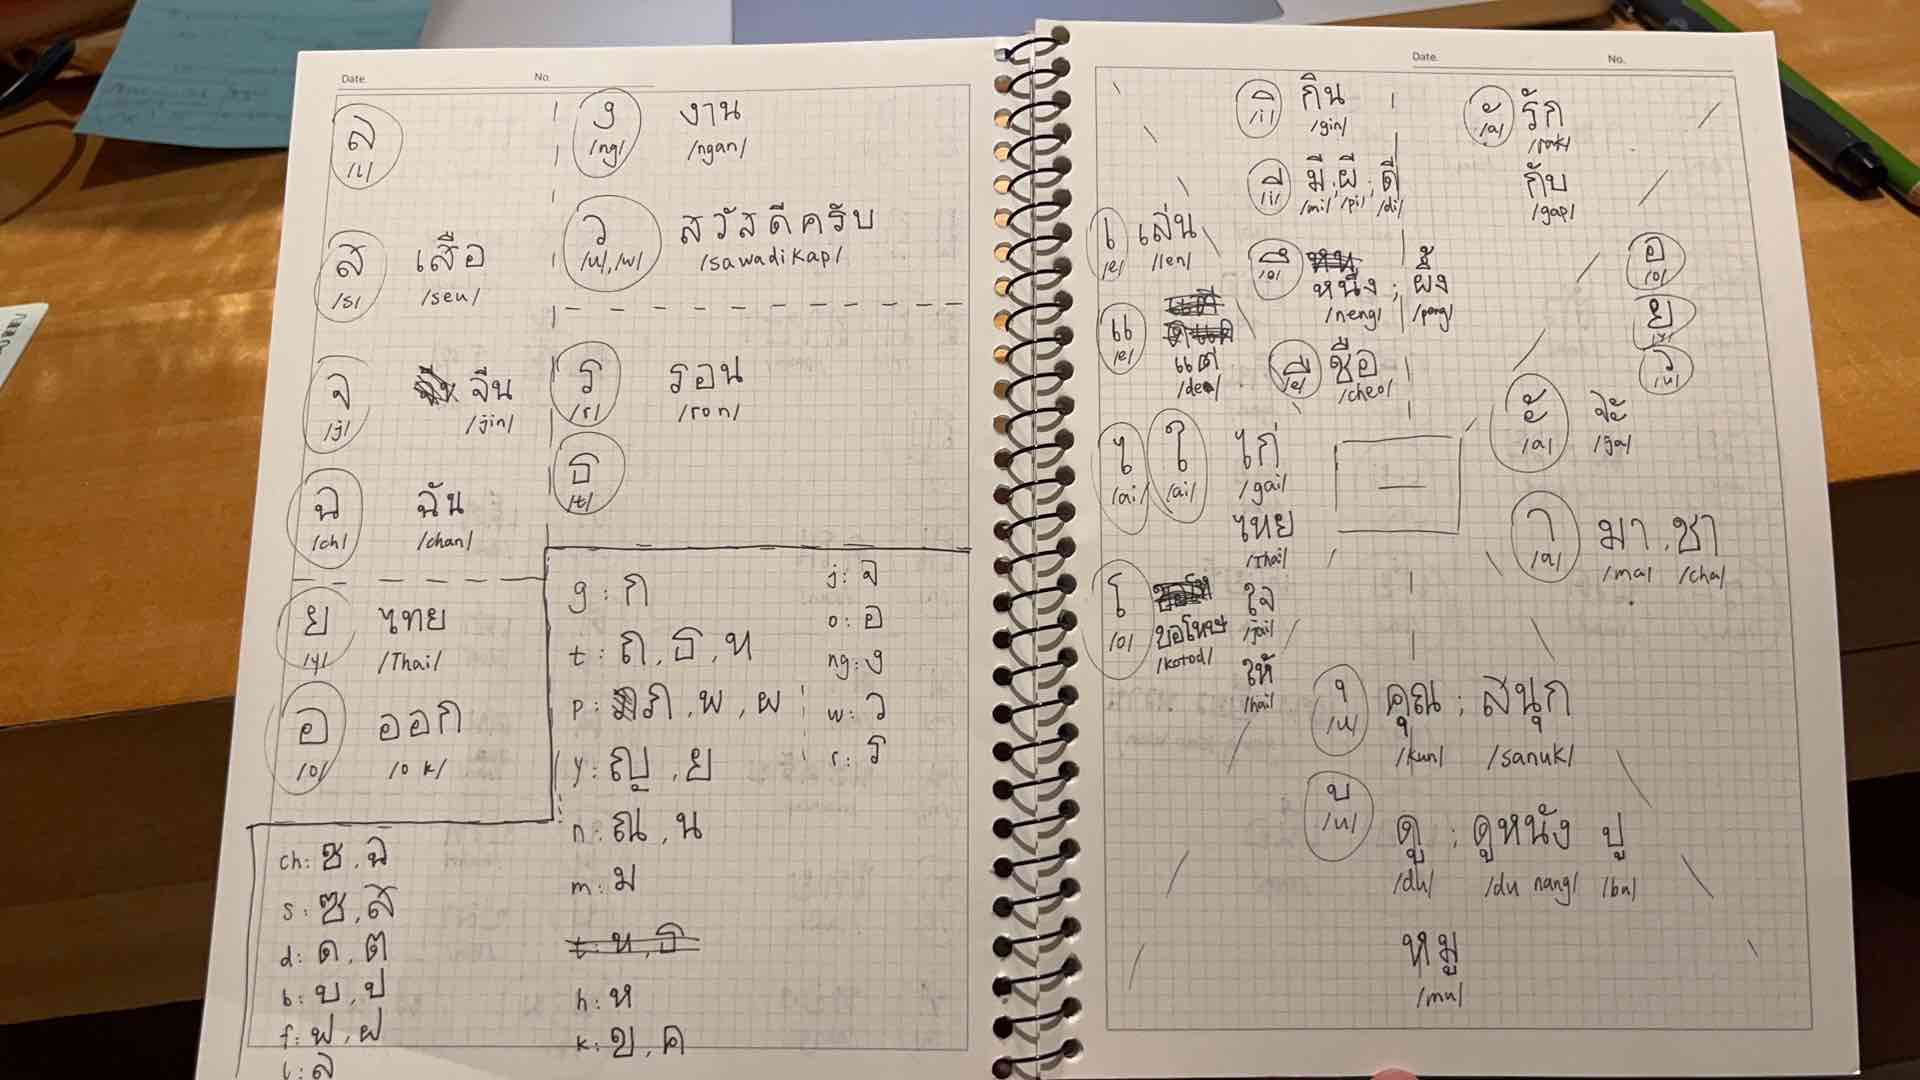 Date. No.
ล
/l/
ส เสือ
/s/ /seu/
จ จีน
/j/ /jin/
ฉ ฉัน
/ch/ /chan/
ย ไทย
/y/ /Thai/
อ ออก
/o/ /o k/
ch: ช, ฉ
s: ซ, ส
d: ด, ต
b: บ, ป
f: ฟ, ฝ
l: ล
ง งาน
/ng/ /ngan/
ว สวัสดีครับ
/u/, /w/ /sawadikap/
ร รอน
/r/ /ron/
ธ
/t/
g: ก
t: ถ, ธ, ท
p: ภ, พ, ผ
y: ญ, ย
n: ณ, น
m: ม
t: ท, ธ
h: ห
k: ข, ค
j: จ
o: อ
ng: ง
w: ว
r: ร
Date. No.
เ เล่น
/e/ /len/
แ แต่
/e/
ไ ใ ไก่
/ai/ /ai/ /gai/
ไทย
/Thai/
โ ขอโทษ ใจ
/o/ /kotod/ /jai/
ให้
/hai/
ิ กิน
/i/ /gin/
ี มี, ผี, ดี
/i/ /mi/ /pi/ /di/
ึ หนึ่ง; ผึ้ง
/o/ /neng/ /peng/
ื ชื่อ
/e/ /cheo/
ั รัก
/a/ /rak/
กับ
/gap/
อ
/o/
ย
/y/
ว
/u/
ะ จ้ะ
/a/ /ja/
า มา, ชา
/a/ /ma/ /cha/
ุ คุณ; สนุก
/u/ /kun/ /sanuk/
ู ดู; ดูหนัง ปู
/u/ /du/ /du nang/ /bu/
หมู
/mu/